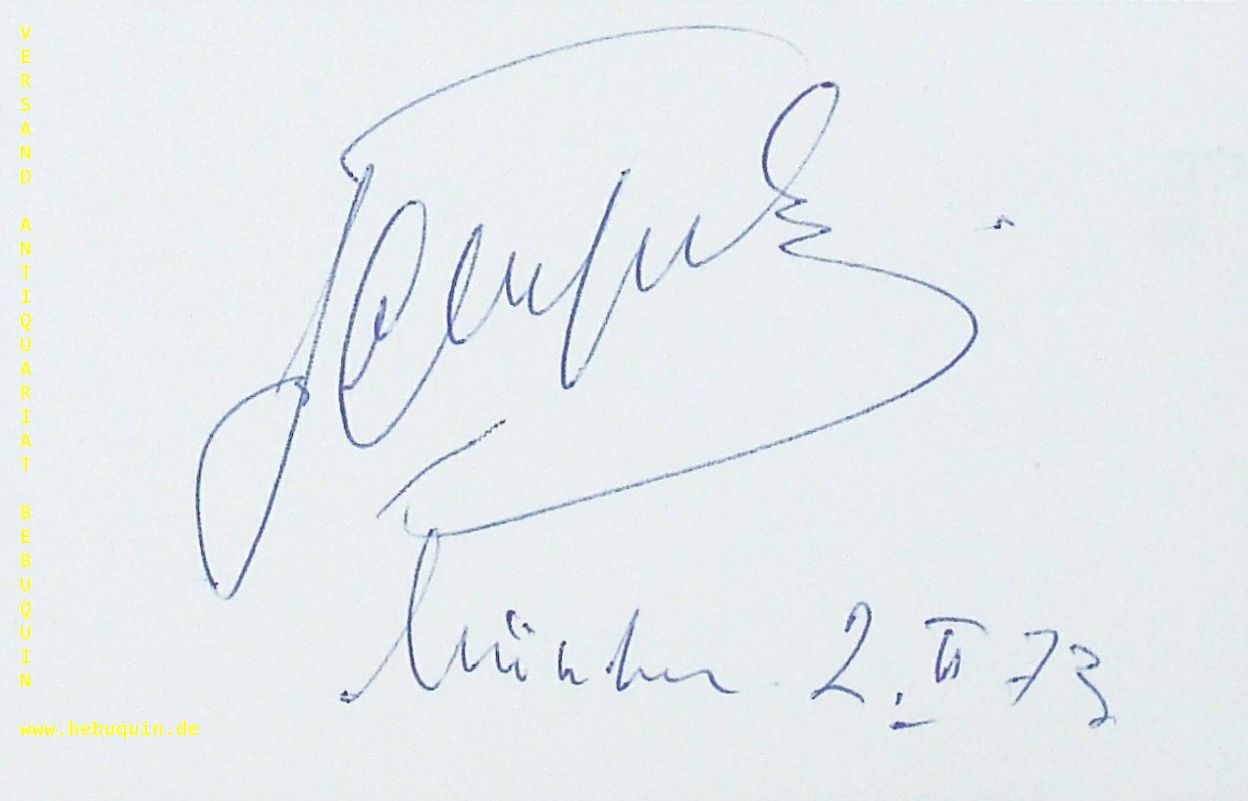 VERSAND ANTIQUARIAT BEBUQUIN
München 2. VI 73
www.bebuquin.de